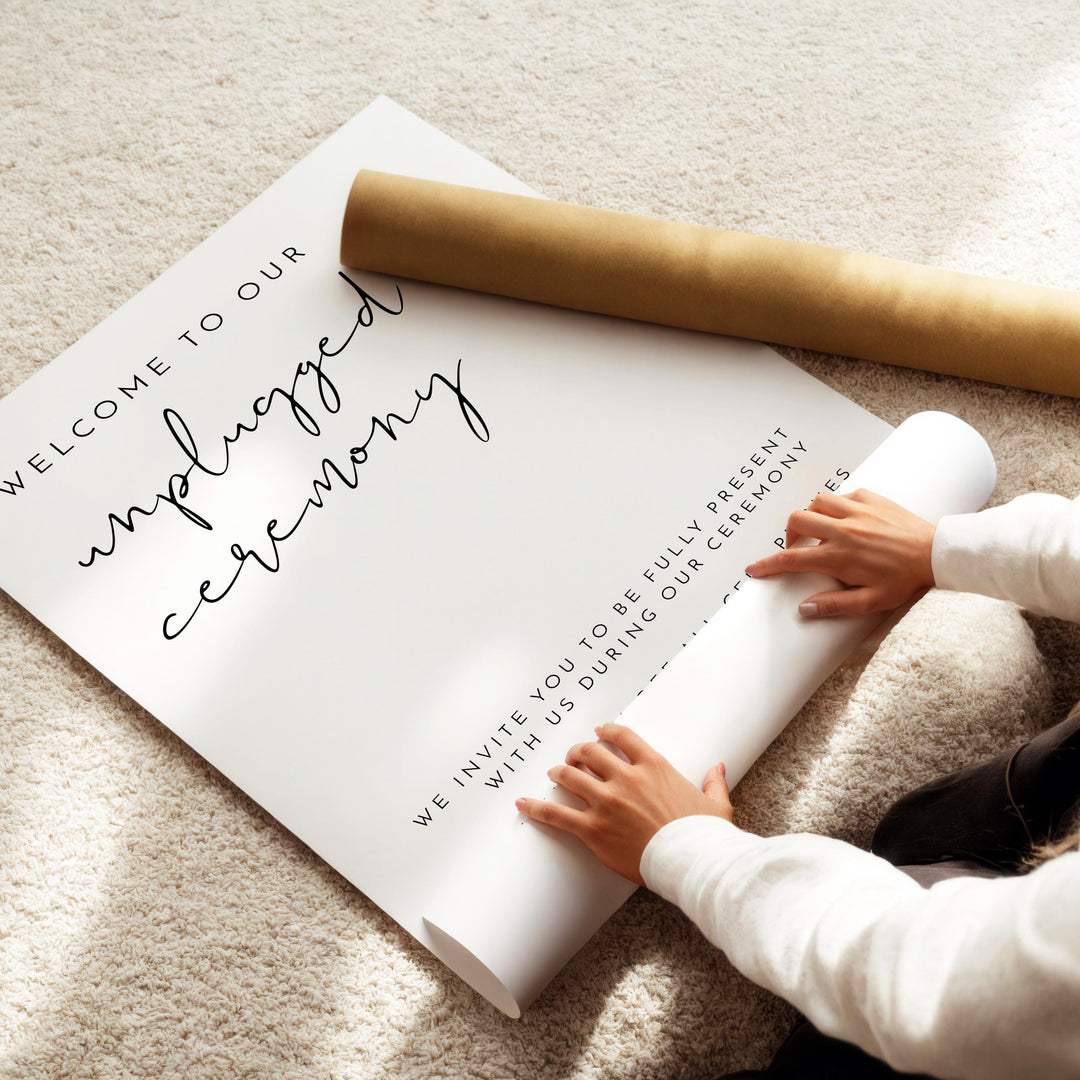 WELCOME TO OUR
unplugged
ceremony
WE INVITE YOU TO BE FULLY PRESENT
WITH US DURING OUR CEREMONY